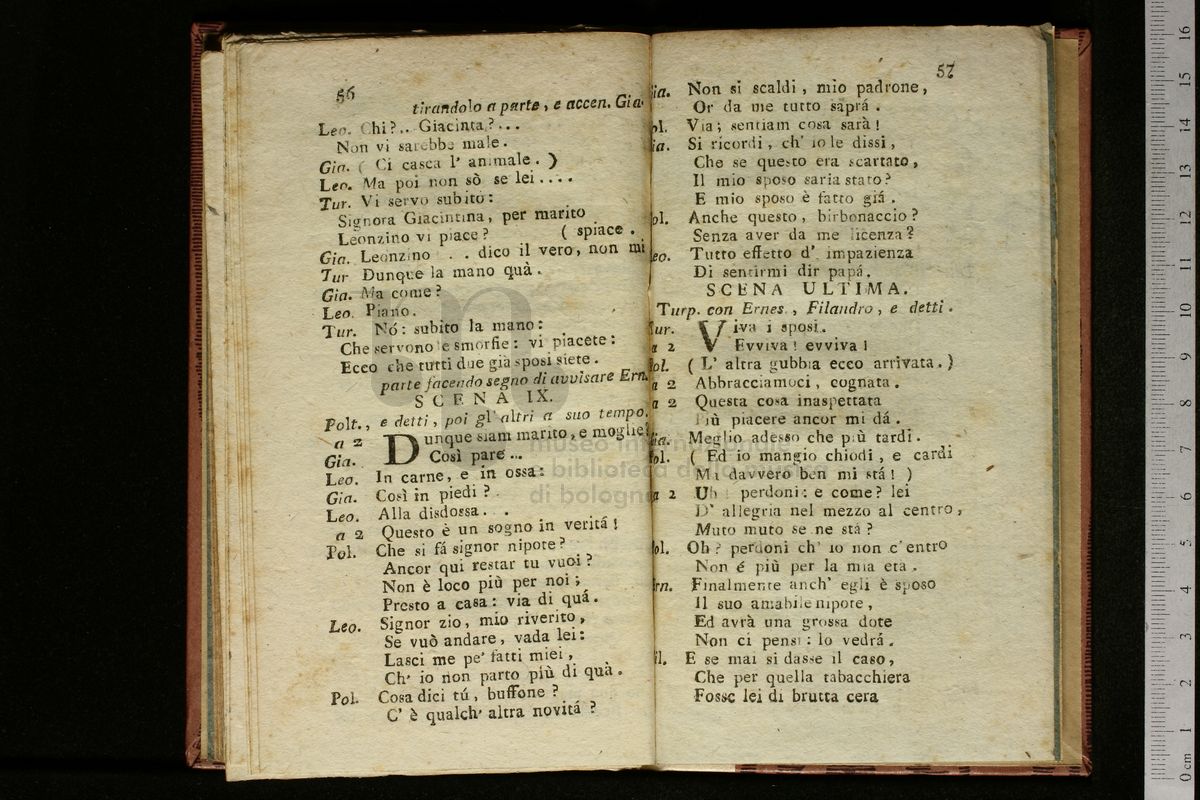 56
tirandolo a parte, e accen. Gia.
Leo. Chi?.. Giacinta?...
Non vi sarebbe male.
Gia. ( Ci casca l' animale. )
Leo. Ma poi non sò se lei....
Tur. Vi servo subito:
Signora Giacintina, per marito
Leonzino vi piace? ( spiace.
Gia. Leonzino . . dico il vero, non mi
Tur Dunque la mano quà.
Gia. Ma come?
Leo. Piano.
Tur. Nó: subito la mano:
Che servono le smorfie: vi piacete:
Ecco che tutti due già sposi siete.
parte facendo segno di avvisare Ern.
SCENA IX.
Polt., e detti, poi gl' altri a suo tempo.
a 2 Dunque siam marito, e moglie?
Gia. Così pare...
Leo. In carne, e in ossa:
Gia. Così in piedi?
Leo. Alla disdossa. . .
a 2 Questo è un sogno in veritá!
Pol. Che si fá signor nipote?
Ancor qui restar tu vuoi?
Non è loco più per noi;
Presto a casa: via di quá.
Leo. Signor zio, mio riverito,
Se vuò andare, vada lei:
Lasci me pe' fatti miei,
Ch' io non parto più di quà.
Pol. Cosa dici tú, buffone?
C' è qualch' altra novitá?
57
ia. Non si scaldi, mio padrone,
Or da me tutto saprá.
ol. Via; sentiam cosa sarà!
ia. Si ricordi, ch' io le dissi,
Che se questo era scartato,
Il mio sposo saria stato?
E mio sposo è fatto giá.
ol. Anche questo, birbonaccio?
Senza aver da me licenza?
eo. Tutto effetto d' impazienza
Di sentirmi dir papá.
SCENA ULTIMA.
Turp. con Ernes., Filandro, e detti.
ur. Viva i sposi.
a 2 Evviva! evviva!
ol. ( L' altra gubbia ecco arrivata. )
a 2 Abbracciamoci, cognata.
a 2 Questa cosa inaspettata
Più piacere ancor mi dá.
ia. Meglio adesso che più tardi.
ol. ( Ed io mangio chiodi, e cardi
Ma davvero ben mi stá! )
a 2 Uh! perdoni: e come? lei
D' allegria nel mezzo al centro,
Muto muto se ne stá?
ol. Oh? perdoni ch' io non c'entro
Non é più per la mia età.
rn. Finalmente anch' egli è sposo
Il suo amabile nipote,
Ed avrà una grossa dote
Non ci pensi: lo vedrá.
il. E se mai si dasse il caso,
Che per quella tabacchiera
Fosse lei di brutta cera
museo internazionale
e biblioteca della musica
di bologna
0 cm 1 2 3 4 5 6 7 8 9 10 11 12 13 14 15 16